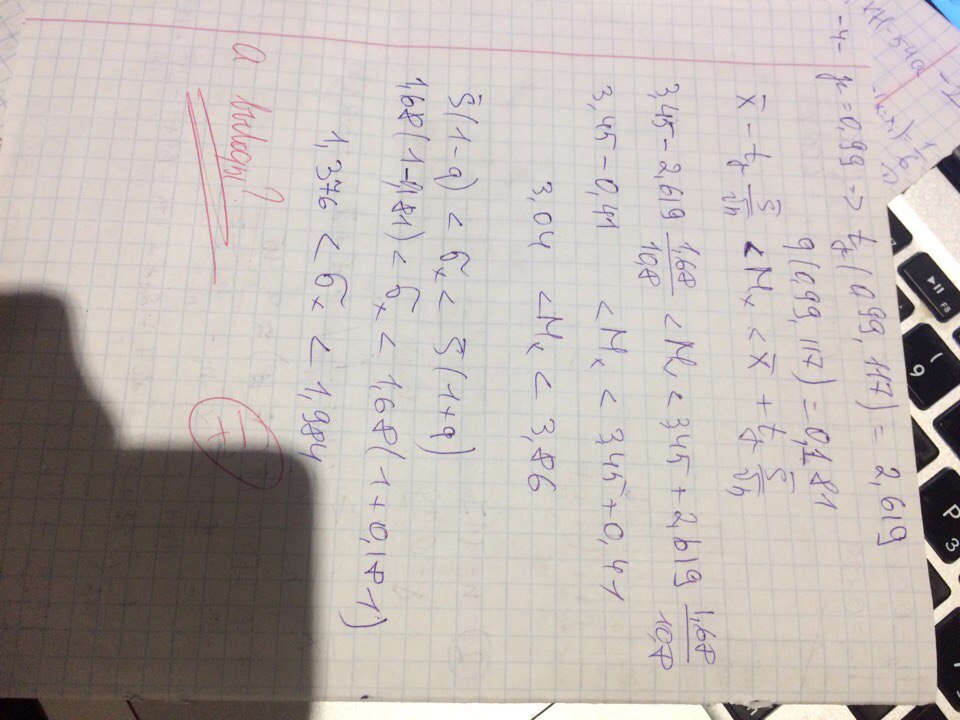 -4-
γ = 0,99 => tγ (0,99, 117) = 2,619
q (0,99, 117) = 0,181
x̄ - tγ s̄/√n < Mx < x̄ + tγ s̄/√n
3,45 - 2,619 1,68/10,8 < M < 3,45 + 2,619 1,68/10,8
3,45 - 0,41 < Mx < 3,45 + 0,41
3,04 < Mx < 3,86
s̄(1-q) < σx < s̄(1+q)
1,68(1-0,181) < σx < 1,68(1+0,181)
1,376 < σx < 1,984
а выводы?
F8
9
P
З